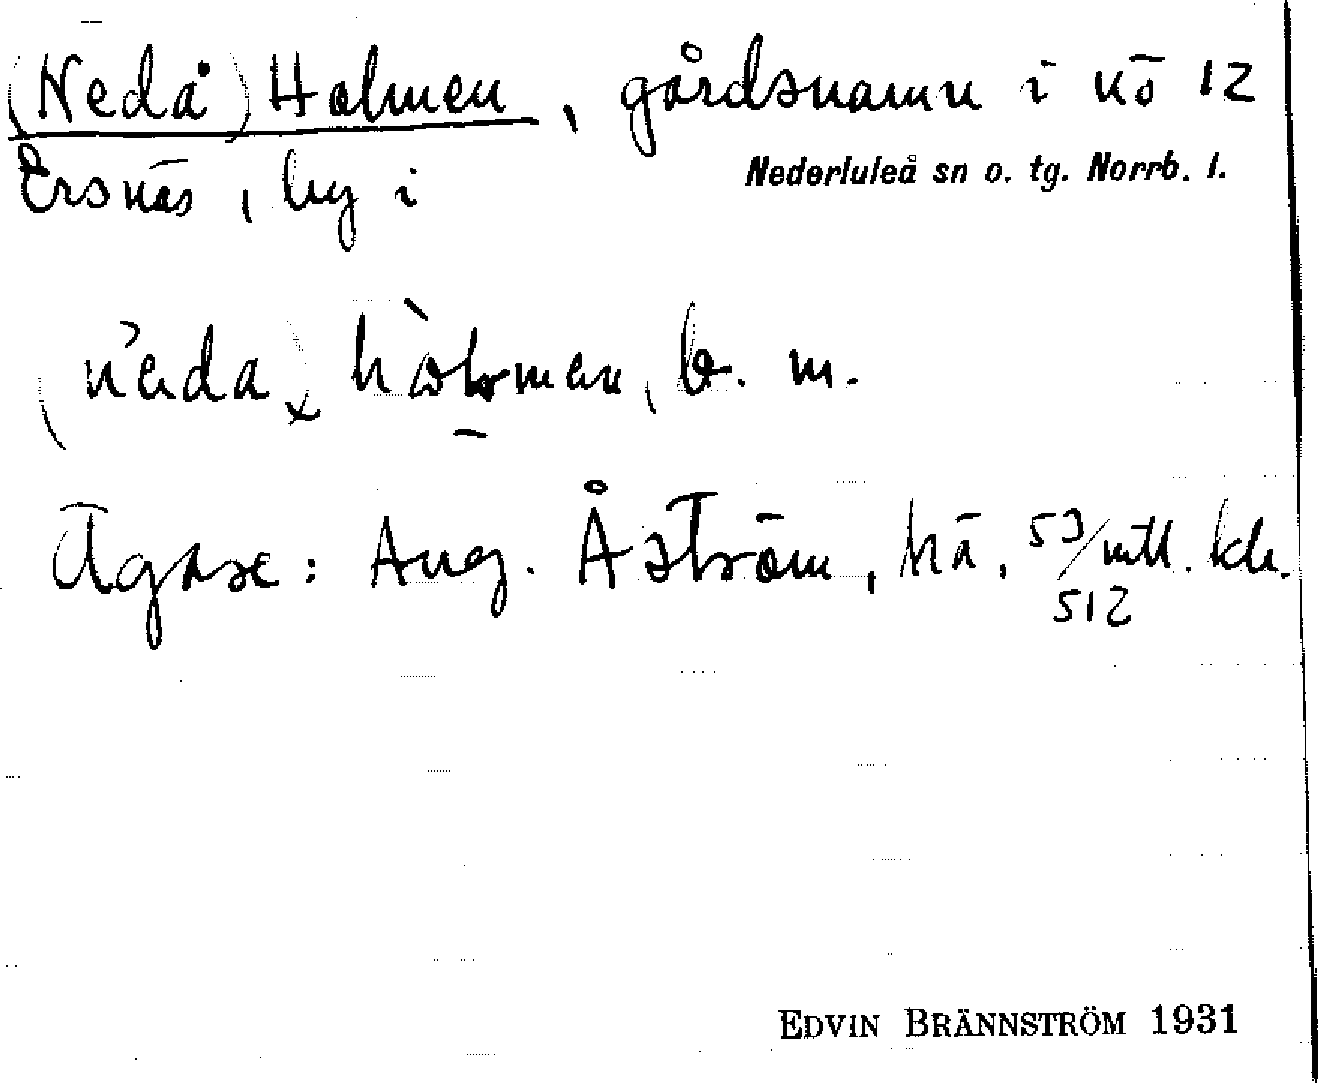 (Nedå) Holmen, gårdsnamn i nö 12
Ersnäs, by i Nederluleå sn o. tg. Norrb. l.
(nèda) hòlmen, b. m.
Ägare: Aug. Åström, hä, 53/512 mtl. kr.
EDVIN BRÄNNSTRÖM 1931